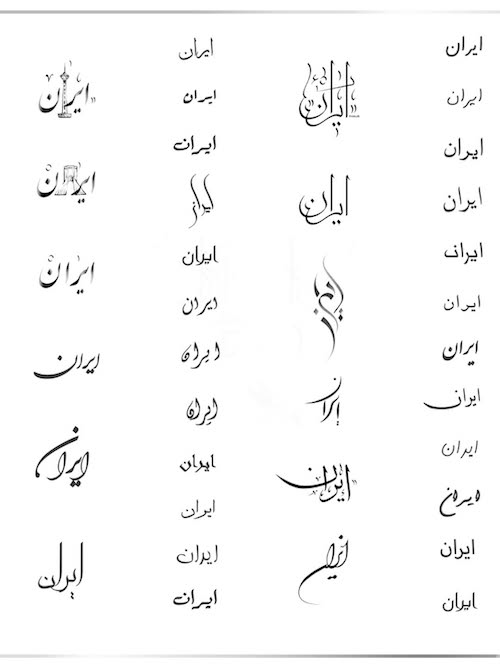 ایران
ایران
ایران
ایران
ایران
ایران
ایران
ایران
ایران
ایران
ایران
ایران
ایران
ایران
ایران
ایران
ایران
ایران
ایران
ایران
ایران
ایران
ایران
ایران
ایران
ایران
ایران
ایران
ایران
ایران
ایران
ایران
ایران
ایران
ایران
ایران